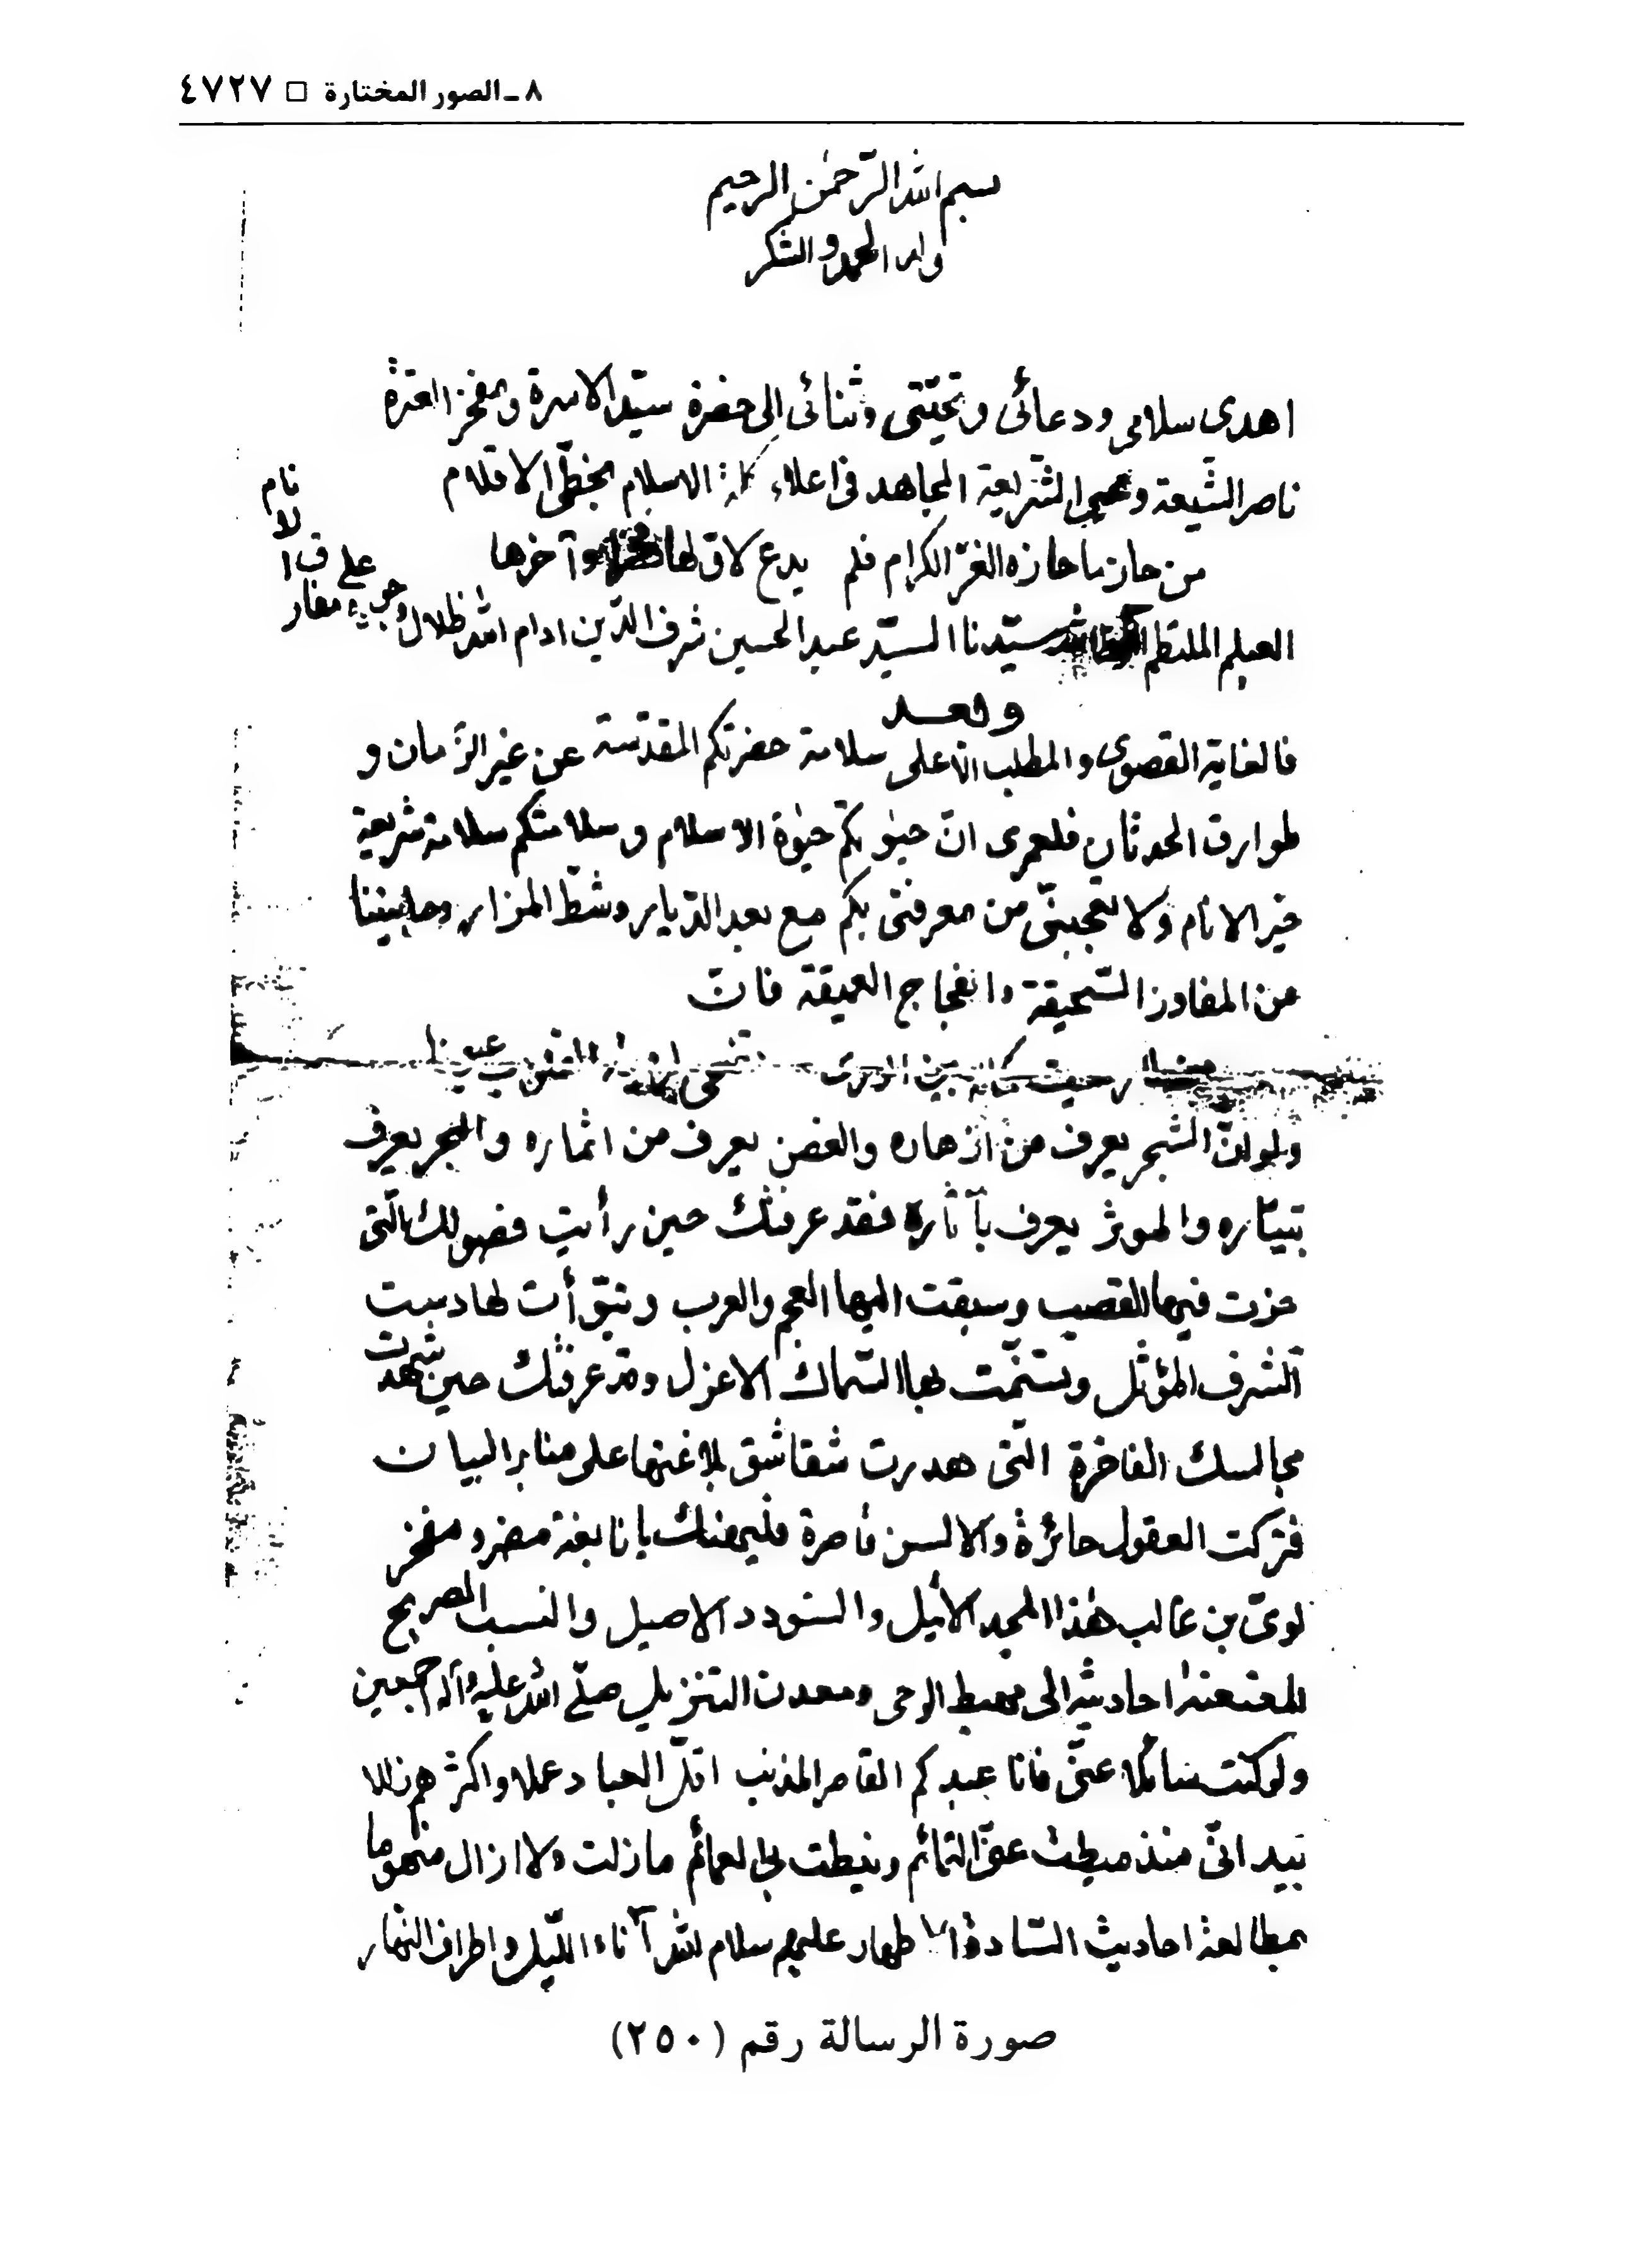 ٨ ـ الصور المختارة □ ٤٧٢٧
بسم الله الرّحمٰن الرحيم
وله الحمد والشكر
اهدى سلامى ودعائى وتحيّتى وثنائى الى حضرة سيّد الاسرة ومفخر العترة
ناصر الشّيعة ومحيى الشّريعة المجاهد فى اعلاء كلمة الاسلام بخطّى الاقلام
من حاز ما حازه الغرّ الكرام فلم يدع لاق لها وآخرها
العيلم الملتطم سيّدنا السيّد عبد الحسين شرف الدّين ادام الله ظلاله على
نام
وبعد
فالغاية القصوى والمطلب الاعلى سلامة حضرتكم المقدّسة عن غير الزّمان و
طوارق الحدثان فلعمرى انّ حيٰوتكم حيٰوة الاسلام وسلامتكم سلامة شريعة
خير الانام ولا تعجبنّ من معرفتى بكم مع بعد الدّيار وشطّ المزار وما بيننا
من المفاوز السّحيقة والفجاج العميقة فانّ
ولو انّ الشجر يعرف من ازهاره والغصن يعرف من اثماره والبحر يعرف
بتيّاره والموثر يعرف بآثاره فقد عرفتك حين رأيت فصولك الّتى
حزت فيها القصب وسبقت اليها العجم والعرب وتبوّأت لها دست
الشرف المؤثّل وتسنّمت بها السّماك الاعزل وقد عرفتك حين شهدت
مجالسك الفاخرة الّتى هدرت شقاشق بلاغتها على منابر البيان
فتركت العقول حائرة والالسن قاصرة فليهنك يا نابغة مضر ومفخر
لوىّ بن غالب هٰذا المجد الأثيل والسّودد الاصيل والنسب الصريح
المعنعنة احاديثه الى مهبط الوحى ومعدن التنزيل صلّى الله عليه وآله اجمعين
ولو كنت سائلا عنّى فانا عبدكم القاصر المذنب اقلّ العباد عملا واكثرهم زللا
بيد انّى منذ ميطت عنّى التمائم ونيطت بى العمائم ما زلت ولا ازال منهوما
بمطالعة احاديث السّادة الاطهار عليهم سلام الله آناء اللّيل واطراف النّهار
صورة الرسالة رقم (٢٥٠)